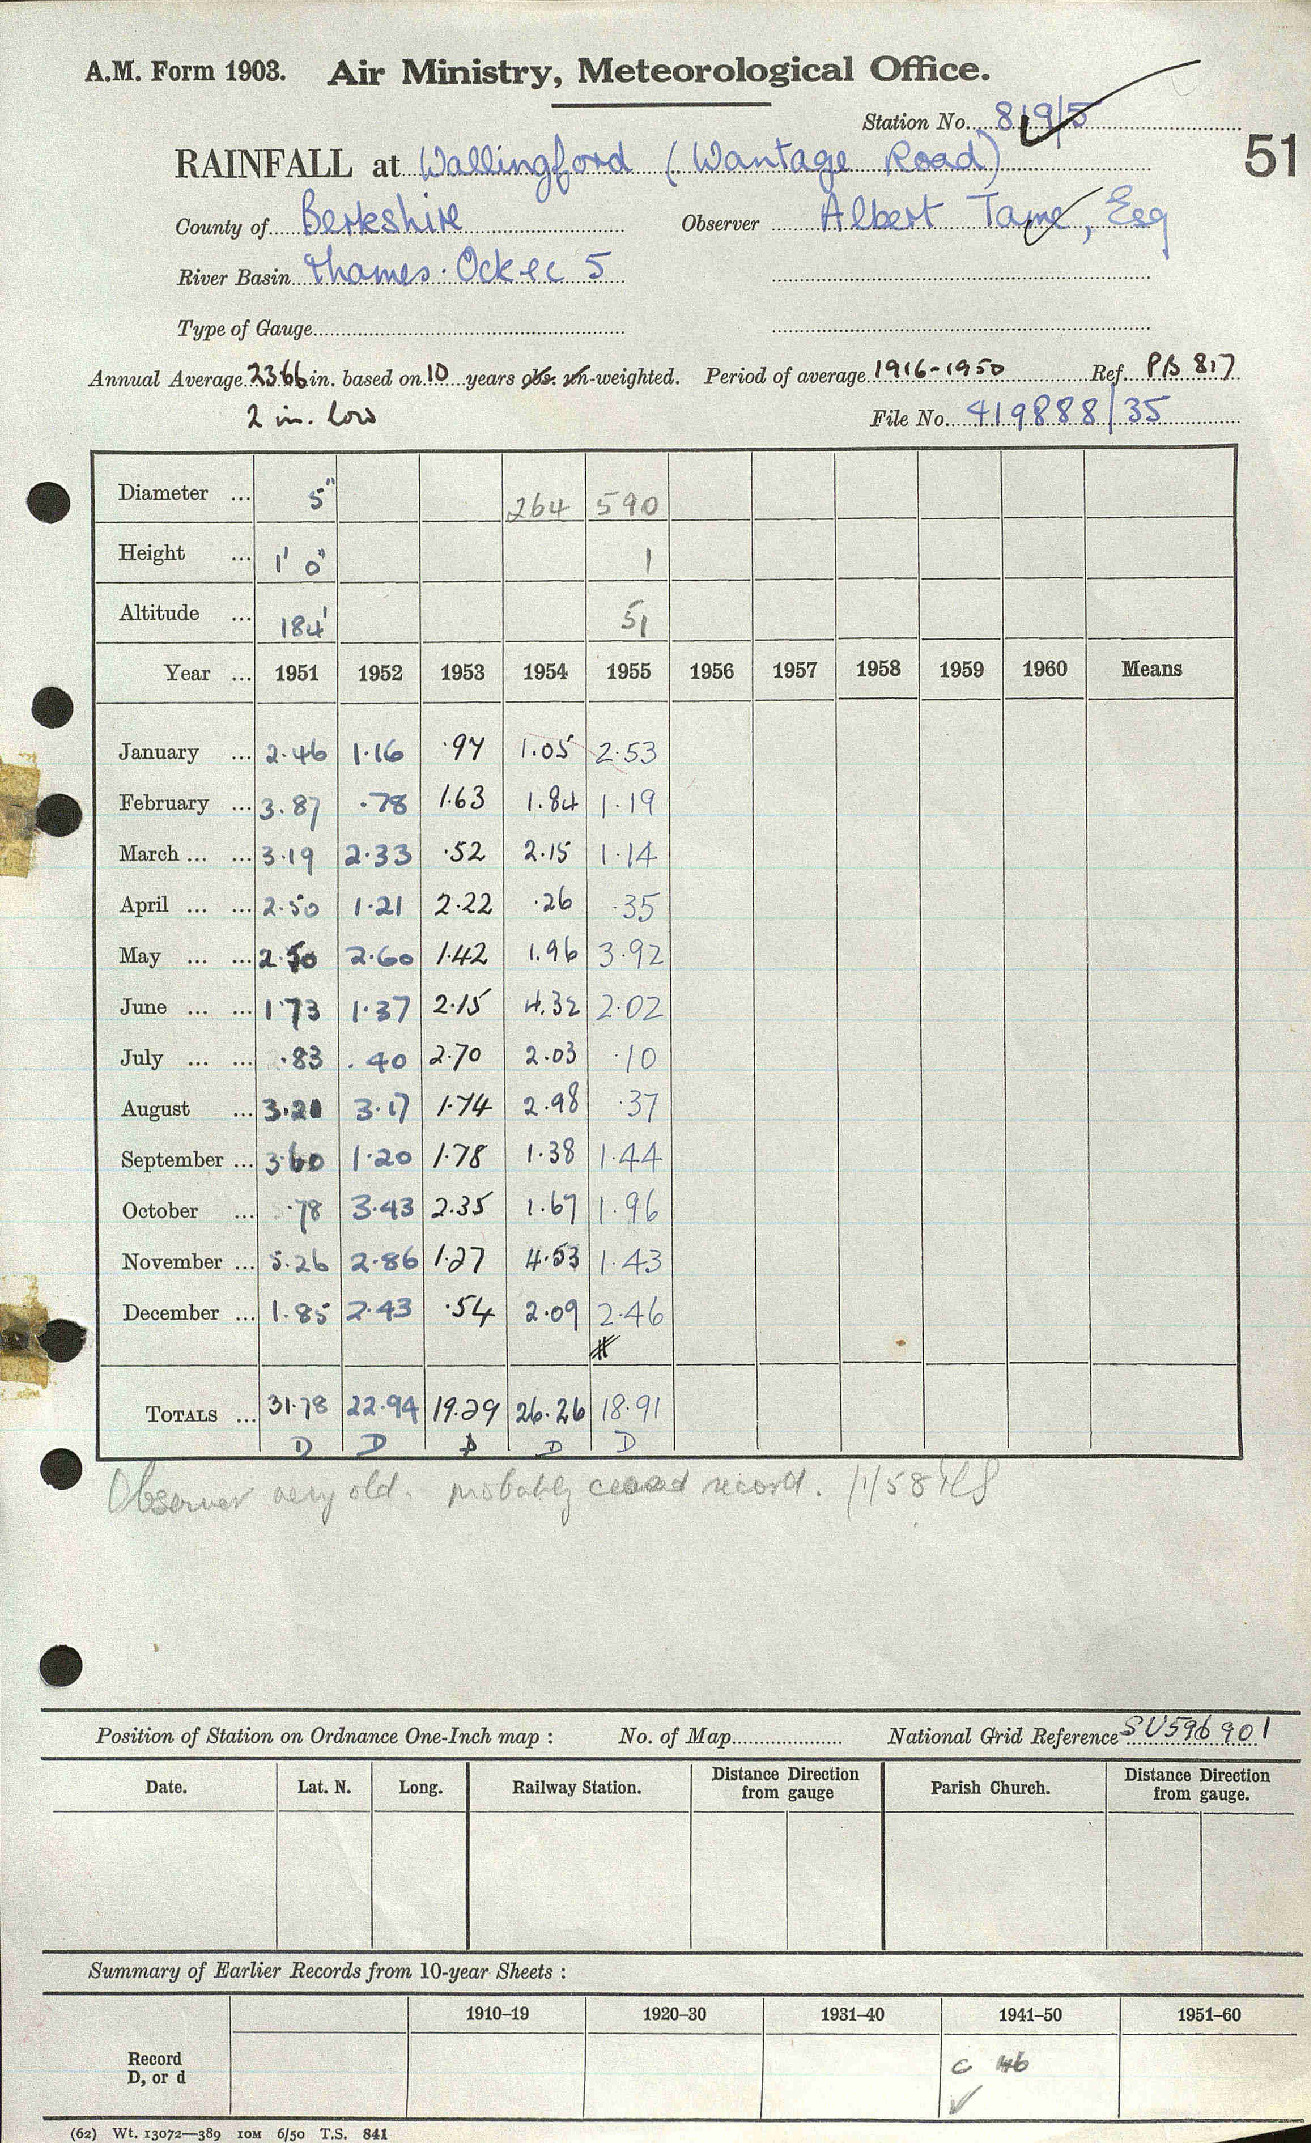 A.M. Form 1903. Air Ministry, Meteorological Office.
Station No. 819/5
51
RAINFALL at Wallingford (Wantage Road)
County of Berkshire Observer Albert Tame, Esq
River Basin Thames: Ock &c 5
Type of Gauge
Annual Average 23.66 in. based on 10 years obs. un-weighted. Period of average 1916-1950 Ref. PB 817
2 in. low File No. 419888/35
Diameter ... 5" 264 590
Height ... 1' 0" 1
Altitude ... 184' 51
Year ... 1951 1952 1953 1954 1955 1956 1957 1958 1959 1960 Means
January ... 2.46 1.16 .97 1.05 2.53
February ... 3.87 .78 1.63 1.84 1.19
March ... ... 3.19 2.33 .52 2.15 1.14
April ... ... 2.50 1.21 2.22 .26 .35
May ... ... 2.50 2.60 1.42 1.96 3.92
June ... ... 1.73 1.37 2.15 4.32 2.02
July ... ... .83 .40 2.70 2.03 .10
August ... 3.21 3.17 1.74 2.98 .37
September ... 3.60 1.20 1.78 1.38 1.44
October ... .78 3.43 2.35 1.67 1.96
November ... 5.26 2.86 1.27 4.53 1.43
December ... 1.85 2.43 .54 2.09 2.46
#
TOTALS ... 31.78 22.94 19.29 26.26 18.91
D D D D D
Observer very old. probably ceased record. 1/1/58
Position of Station on Ordnance One-Inch map : No. of Map National Grid Reference SU596901
Date. Lat. N. Long. Railway Station. Distance Direction from gauge Parish Church. Distance Direction from gauge.
Summary of Earlier Records from 10-year Sheets :
1910–19 1920–30 1931–40 1941–50 1951–60
Record D, or d c 46
(62) Wt. 13072—389 10M 6/50 T.S. 841